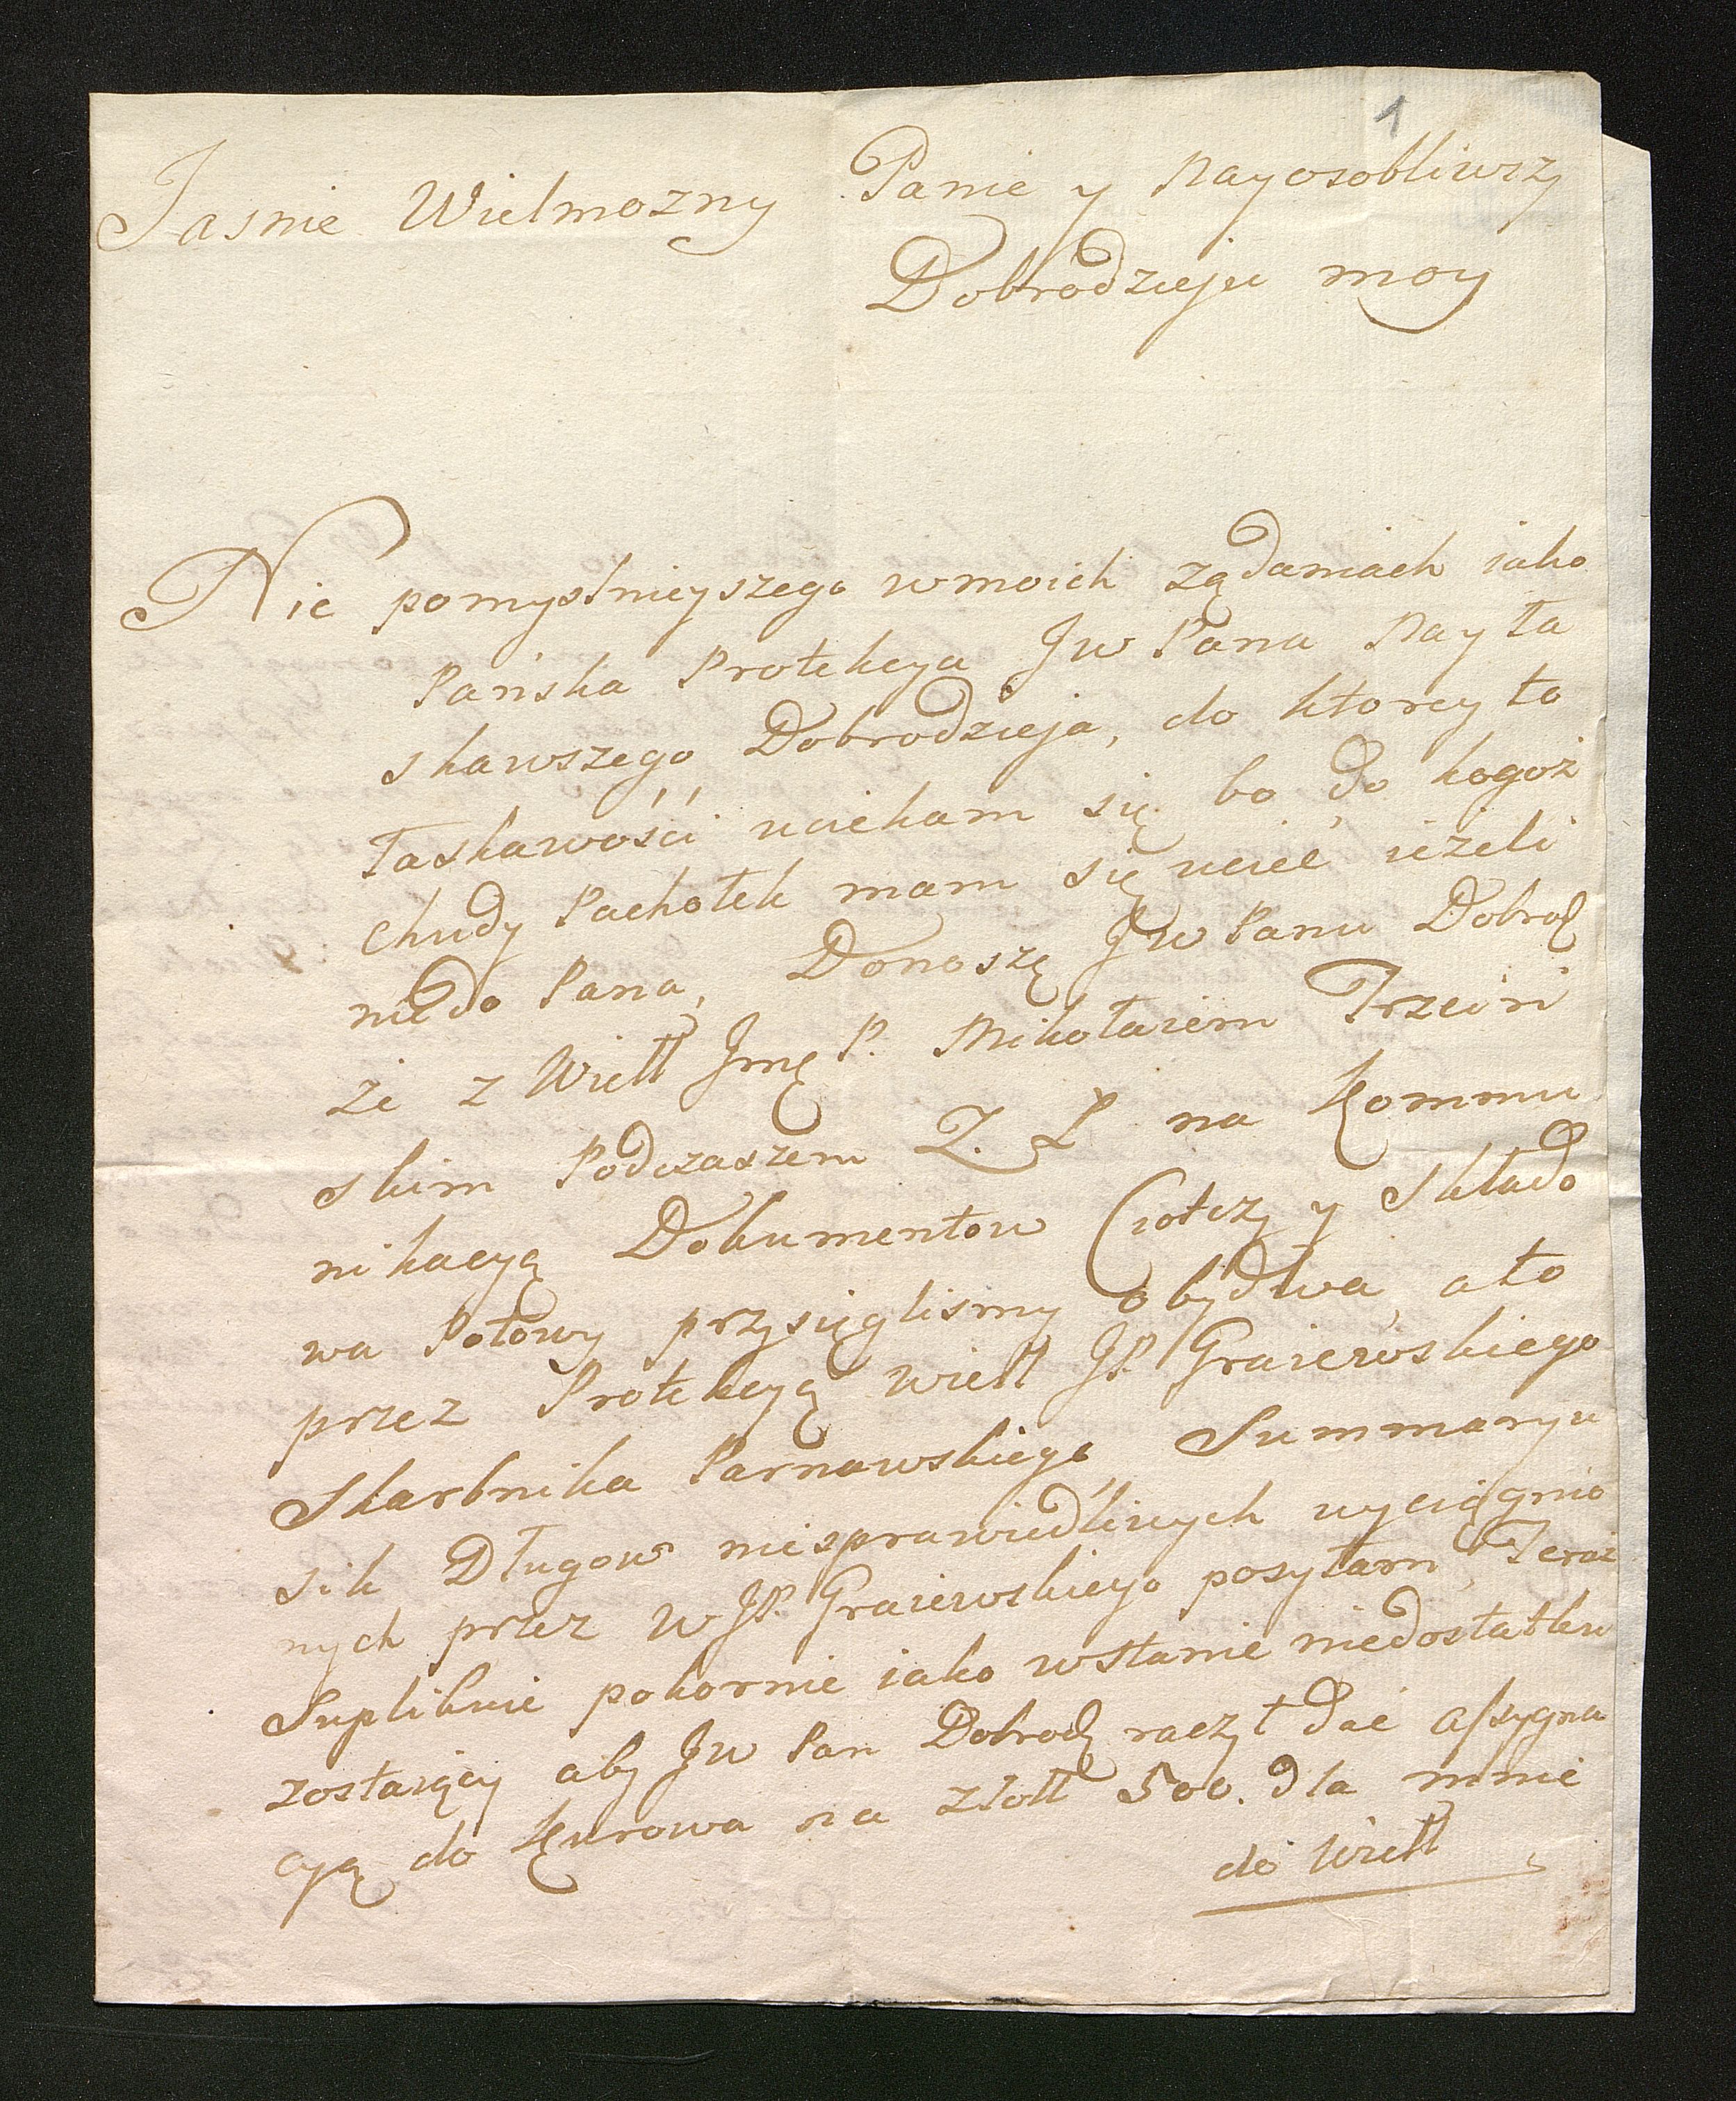 1
Jasnie Wielmozny Panie y Nayosobliwszy
Dobrodzieju moy
Nic pomyslnieyszego wmoich ządaniach iako
Pańska Protekcya Jw Pana Nayła
skawszego Dobrodzieja, do ktorey to
łaskawości uciekam się bo do kogoż
chudy Pachołek mam się uciec ieżeli
niedo Pana, Donoszę Jw Panu Dobrod
że z Wiell Jmę P. Mikołaiem Trzciń
skim Podczaszem Z. L na Kommu
nikacyą Dokumentow Ciotczy y Składo
wa Połowy przysięglismy obydwa, ato
przez Protekcyą wiell JP. Graiewskiego
Skarbnika Parnawskiego Summaryu
sik Długow niesprawiedliwych wyciągnio
nych przez W JP. Graiewskiego posyłam, Teraz
Suplikuie pokornie iako wstanie niedostatku
zostaiący aby Jw Pan Dobrodz raczył dac assygna
cyą do Kurowa na złott 500. dla mnie
de Wiell